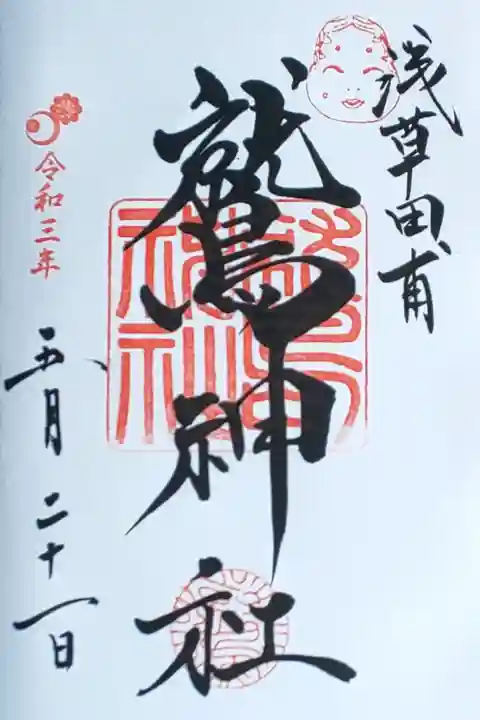 浅草田甫
鷲神社
令和三年
五月二十一日